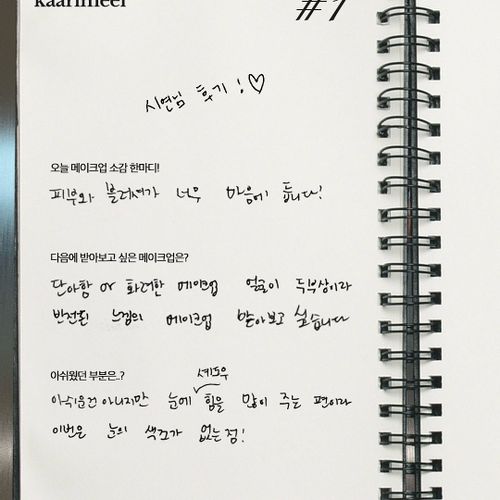 kaarimeei
#1
시연님 후기 ! ♡
오늘 메이크업 소감 한마디!
피부와 블러셔가 너무 마음에 듭니다!
다음에 받아보고 싶은 메이크업은?
단아함 or 화려한 메이크업 얼굴이 두부상이라
반전된 느낌의 메이크업 받아보고 싶습니다
아쉬웠던 부분은..?
섀도우
아쉬운건 아니지만 눈에 힘을 많이 주는 편이라
이번은 눈의 색조가 없는 점!